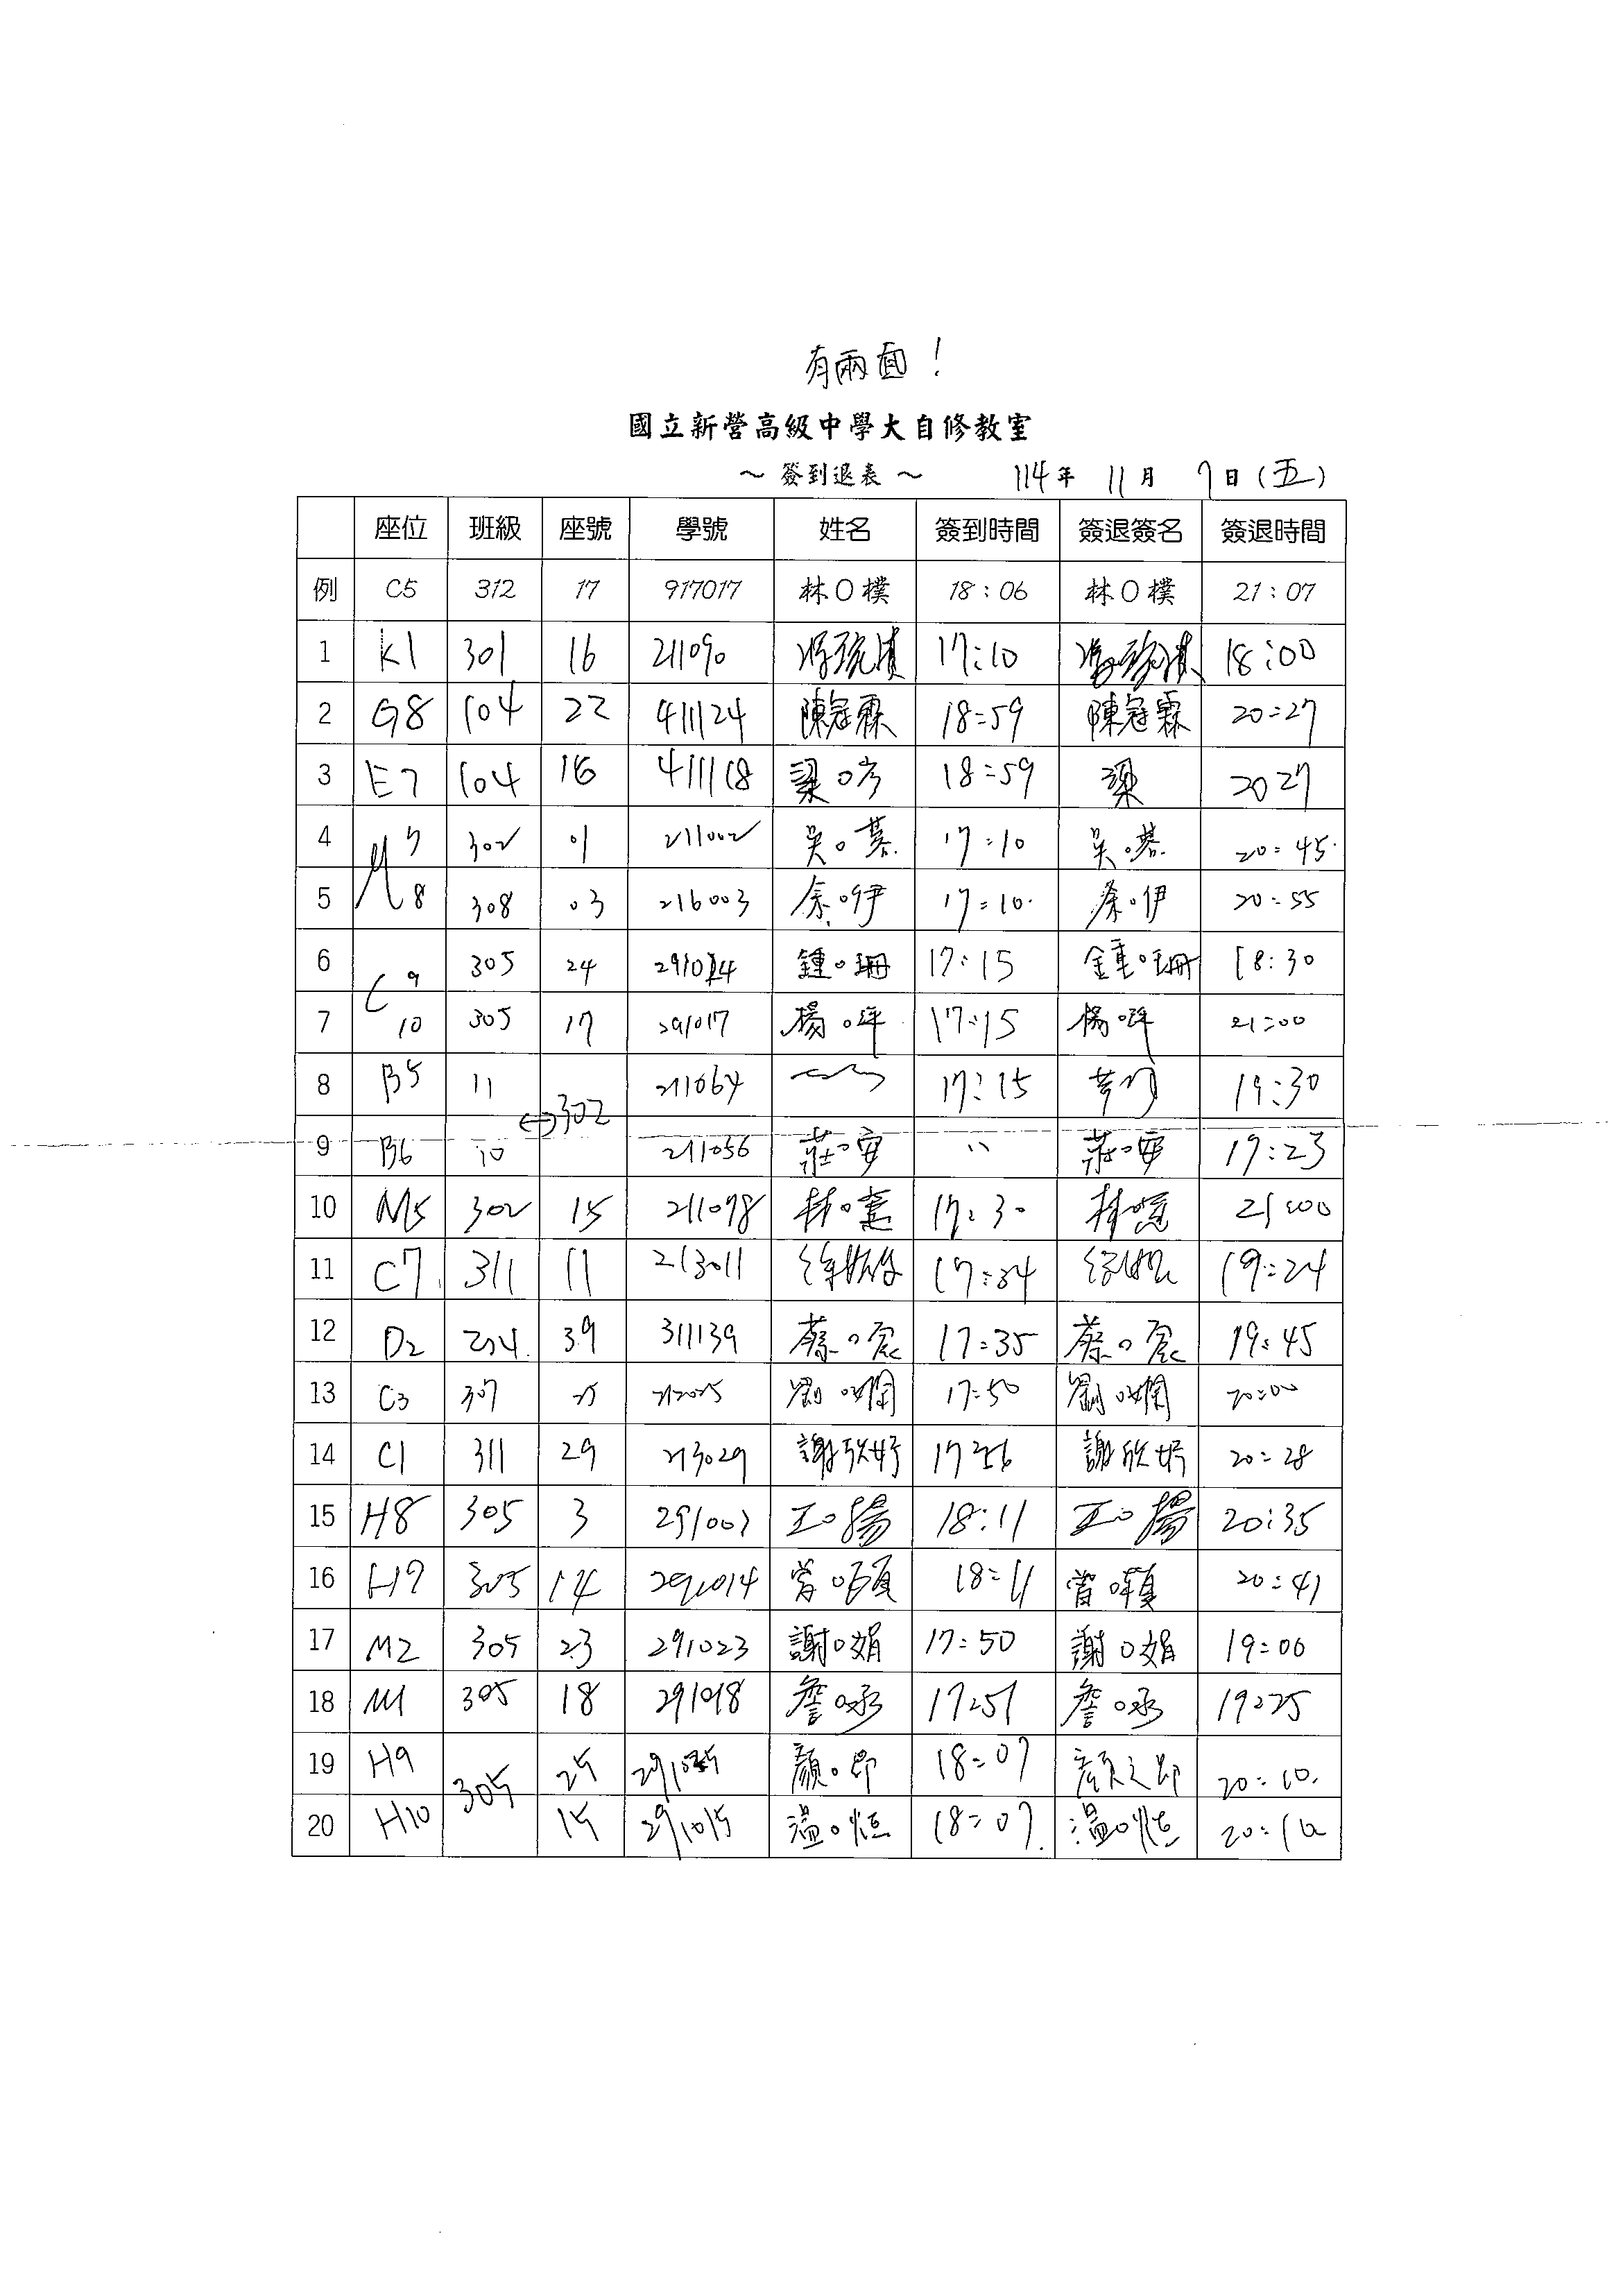 有兩面！
國立新營高級中學大自修教室
～ 簽到退表 ～ 114年 11月 7日(五)
座位 班級 座號 學號 姓名 簽到時間 簽退簽名 簽退時間
例 C5 312 17 917017 林O樸 18:06 林O樸 21:07
1 K1 301 16 211090 17:10 18:00
2 G8 104 22 411124 陳冠霖 18:59 陳冠霖 20:27
3 E7 104 16 411118 梁O彥 18:59 梁 2027
4 M7 302 01 211002 吳O蓁 17:10 吳O蓁 20:45
5 8 308 03 216003 余O伊 17:10 余O伊 20:55
6 C9 305 24 291024 鍾O珊 17:15 鍾O珊 18:30
7 10 305 17 291017 楊O坪 17:15 楊O坪 21:00
8 B5 11 302 211064 17:15 19:30
9 B6 10 211056 莊O安 " 莊O安 19:23
10 M5 302 15 211078 林O萱 17:30 林O萱 21:00
11 C7 311 11 213011 17:34 19:24
12 D2 204 39 311139 蔡O宸 17:35 蔡O宸 19:45
13 C3 307 25 212025 劉O嫻 17:50 劉O嫻 20:00
14 C1 311 29 213029 謝欣妤 17:56 謝欣妤 20:28
15 H8 305 3 291003 王O揚 18:11 王O揚 20:35
16 H7 305 14 291014 18:11 20:41
17 M2 305 23 291023 謝O娟 17:50 謝O娟 19:00
18 M1 305 18 291018 詹O丞 17:51 詹O丞 19:25
19 H9 305 25 291025 顏O 18:07 顏 20:10
20 H10 15 291015 溫O恒 18:07 溫O恒 20:10